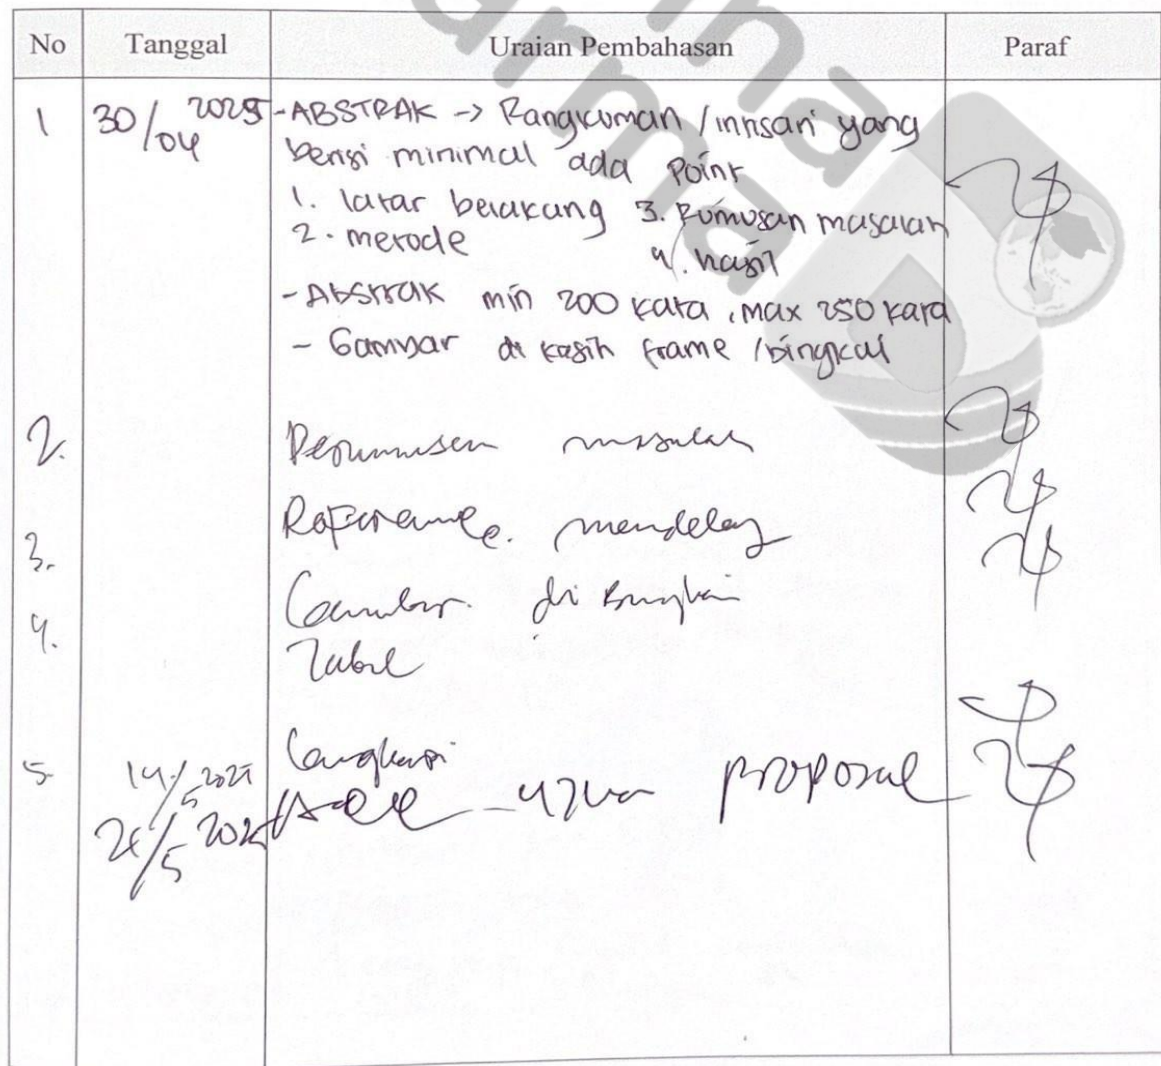 No Tanggal Uraian Pembahasan Paraf
1 30/04 2025 -ABSTRAK -> Rangkuman /intisari yang
berisi minimal ada point
1. latar belakang 3. Rumusan masalah
2. metode 4. hasil
- Abstrak min 200 kata, max 250 kata
- Gambar di kasih frame /bingkai
2. Perumusan masalah
3. Reference. mendeley
4. Gambar di Bingkai
Tabel
5. 14/5 2025 Lengkapi
26/5 2025 Acc ujian proposal